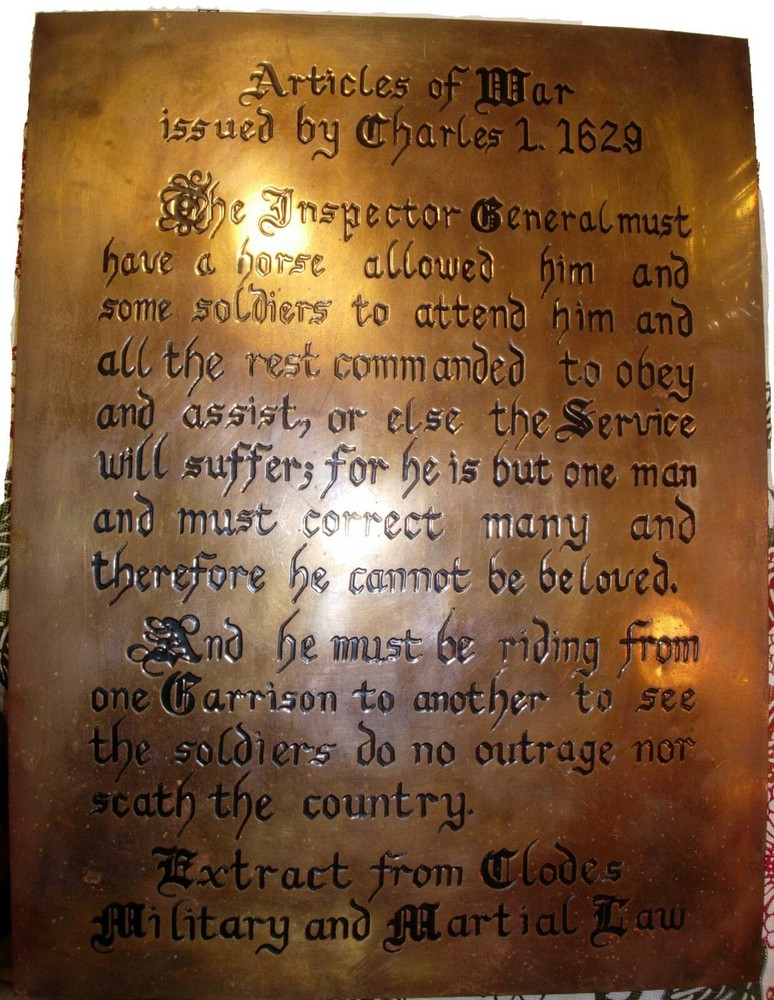 Articles of War
issued by Charles 1. 1629
The Inspector General must
have a horse allowed him and
some soldiers to attend him and
all the rest commanded to obey
and assist, or else the Service
will suffer; for he is but one man
and must correct many and
therefore he cannot be beloved.
And he must be riding from
one Garrison to another to see
the soldiers do no outrage nor
scath the country.
Extract from Clodes
Military and Martial Law